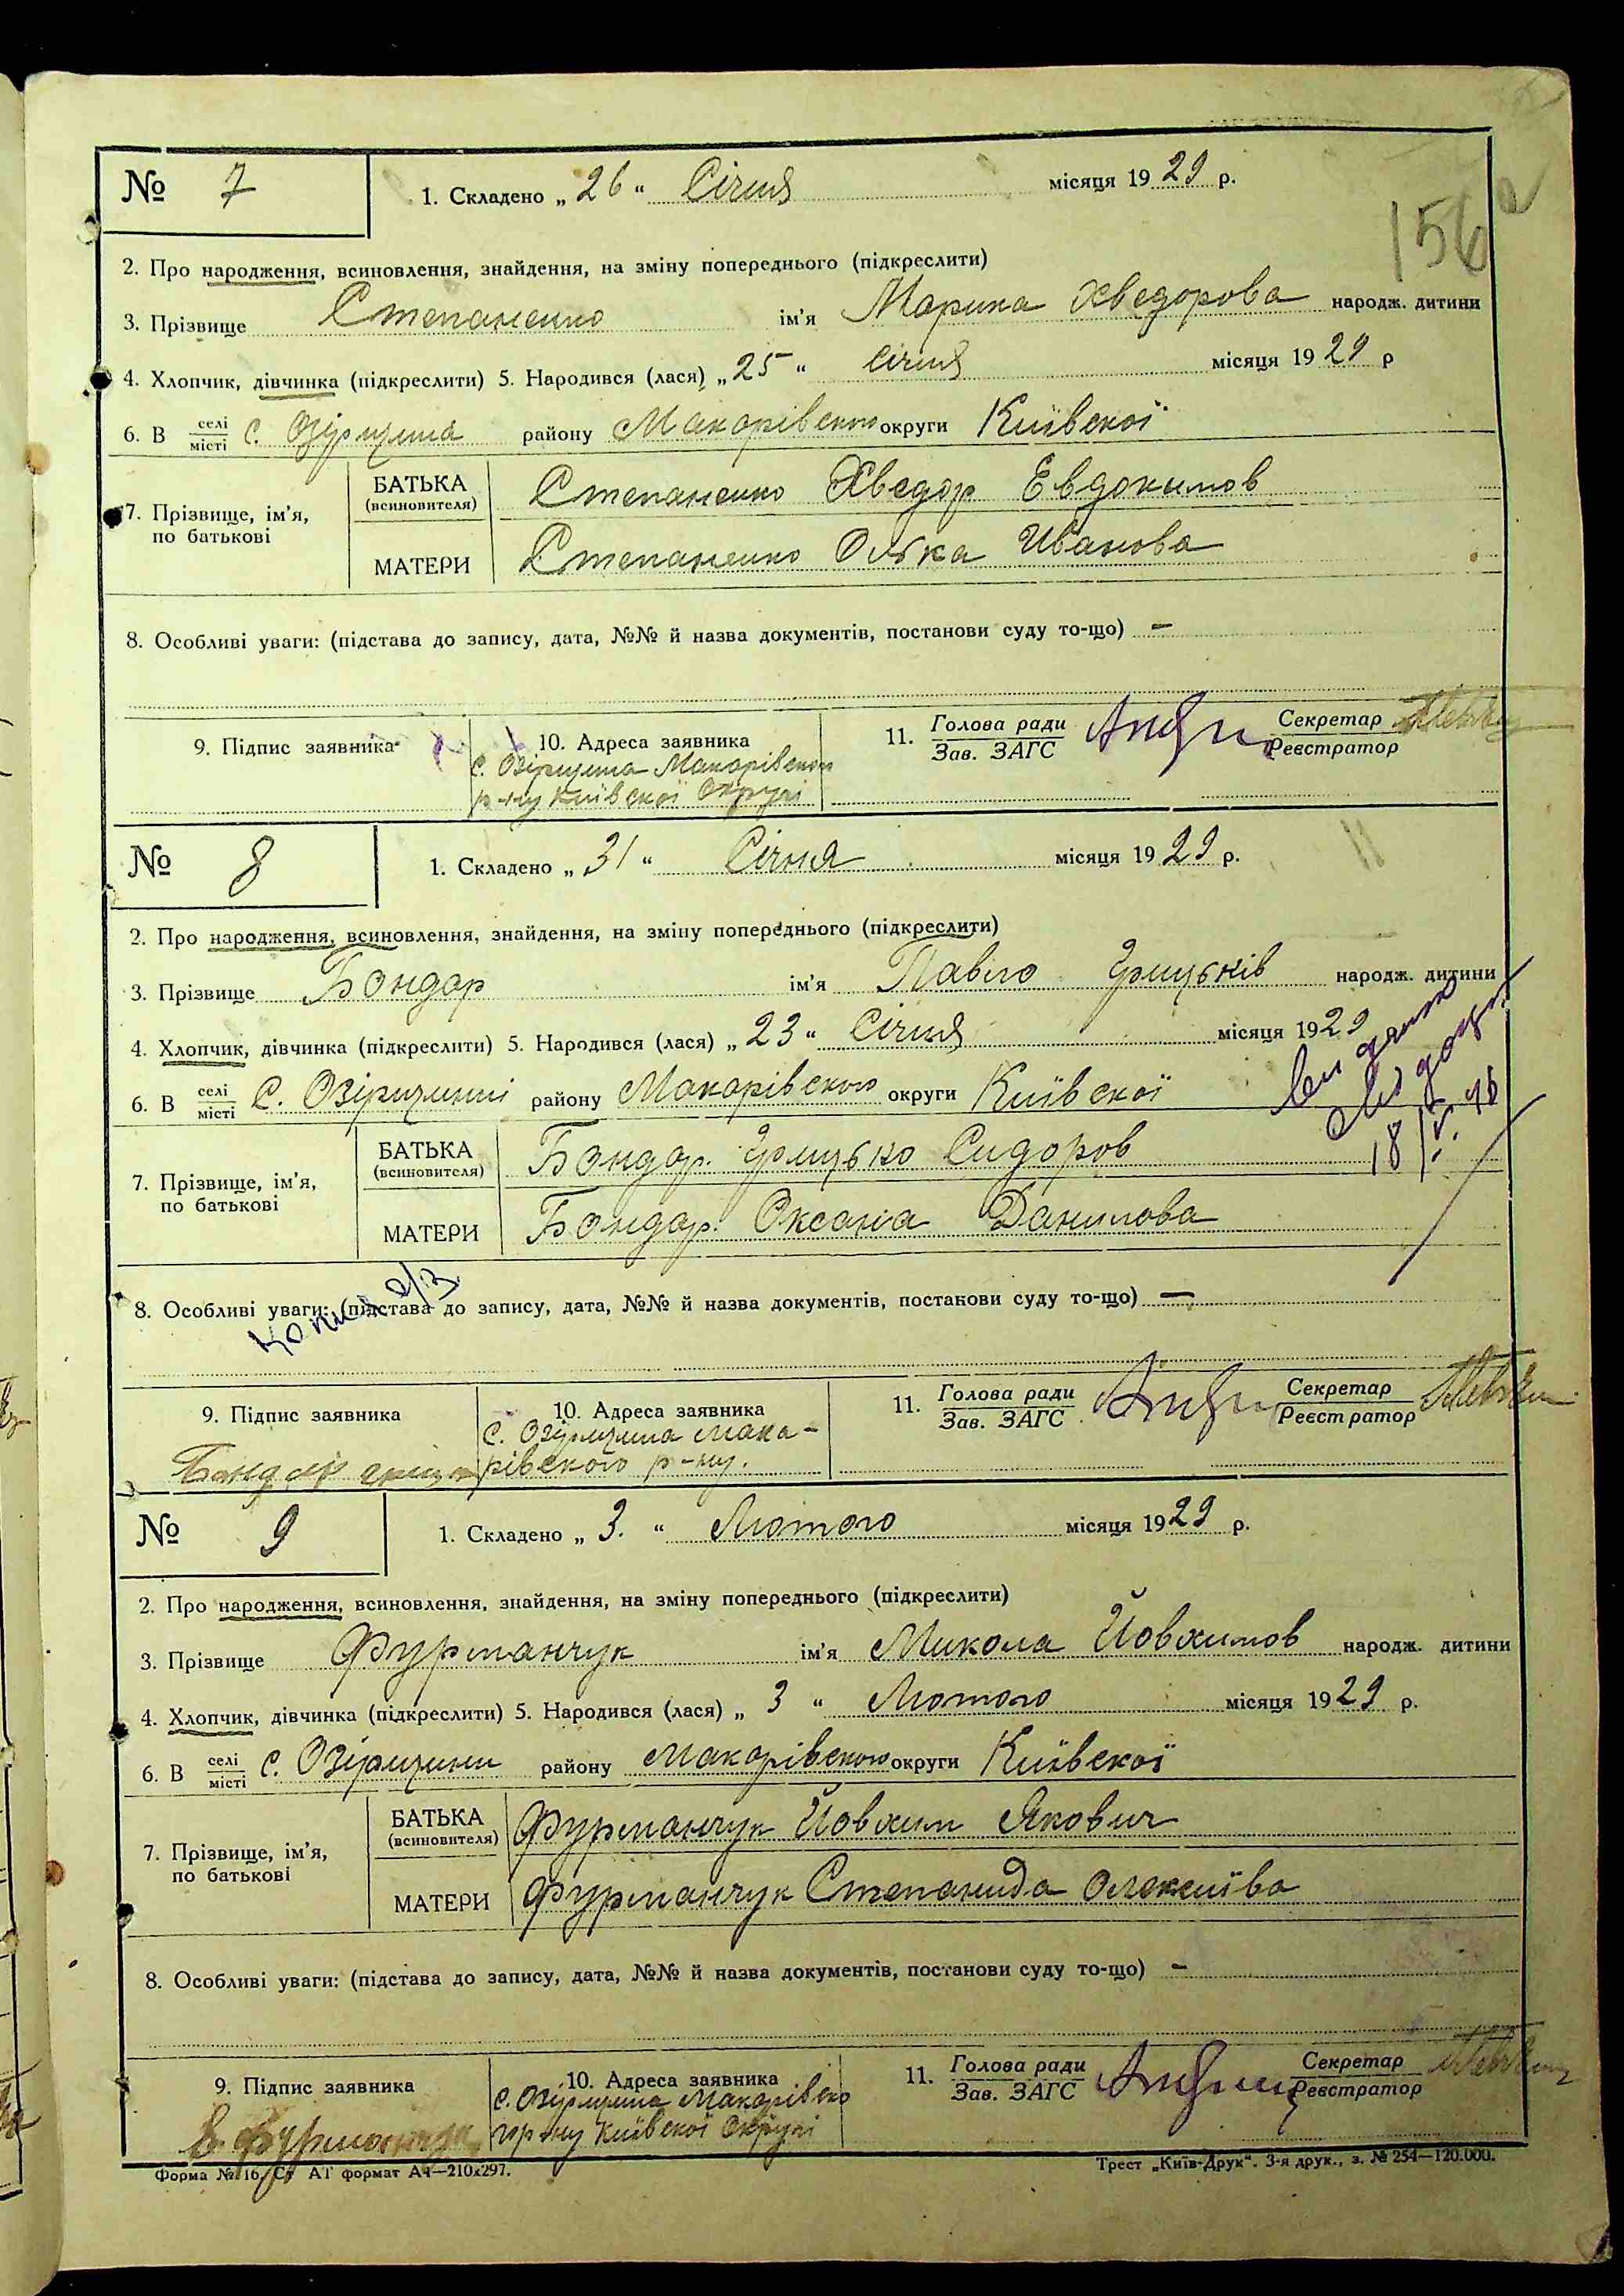 № 7
1. Складено „26“ Січня місяця 1929 р.
156
2. Про народження, всиновлення, знайдення, на зміну попереднього (підкреслити)
3. Прізвище Степаненко ім'я Марина Хведорова народж. дитини
4. Хлопчик, дівчинка (підкреслити) 5. Народився (лася) „25“ Січня місяця 1929 р
6. В селі місті с. Озірщина району Макарівского округи Київскої
7. Прізвище, ім'я, по батькові
БАТЬКА (всиновителя) Степаненко Хведор Евдокимов
МАТЕРИ Степаненко Олька Иванова
8. Особливі уваги: (підстава до запису, дата, №№ й назва документів, постанови суду то-що) —
9. Підпис заявника
10. Адреса заявника
с. Озірщина Макарівского
р-ну Київскої Округи
11. Голова ради Зав. ЗАГС
Секретар Реєстратор
№ 8
1. Складено „31“ Січня місяця 1929 р.
2. Про народження, всиновлення, знайдення, на зміну попереднього (підкреслити)
3. Прізвище Бондар ім'я Павло Грицьків народж. дитини
4. Хлопчик, дівчинка (підкреслити) 5. Народився (лася) „23“ Січня місяця 1929
6. В селі місті С. Озірщині району Макарівского округи Київскої
18/V.
7. Прізвище, ім'я, по батькові
БАТЬКА (всиновителя) Бондар Грицько Сидоров
МАТЕРИ Бондар Оксана Данилова
8. Особливі уваги: (підстава до запису, дата, №№ й назва документів, постанови суду то-що) —
9. Підпис заявника
Бондар
10. Адреса заявника
с. Озірщина Мака-
рівского р-ну.
11. Голова ради Зав. ЗАГС
Секретар Реєстратор
№ 9
1. Складено „3.“ Лютого місяця 1929 р.
2. Про народження, всиновлення, знайдення, на зміну попереднього (підкреслити)
3. Прізвище Фурманчук ім'я Микола Йовхимов народж. дитини
4. Хлопчик, дівчинка (підкреслити) 5. Народився (лася) „3“ Лютого місяця 1929 р.
6. В селі місті с. Озірщини району Макарівского округи Київскої
7. Прізвище, ім'я, по батькові
БАТЬКА (всиновителя) Фурманчук Йовхим Якович
МАТЕРИ Фурманчук Степанида Олексиїва
8. Особливі уваги: (підстава до запису, дата, №№ й назва документів, постанови суду то-що) —
9. Підпис заявника
10. Адреса заявника
с. Озірщина Макарівско
го р-ну Київскої Округи
11. Голова ради Зав. ЗАГС
Секретар Реєстратор
Форма № 16. Ст АТ формат А4—210х297.
Трест „Київ-Друк“. 3-я друк., з. № 254—120.000.